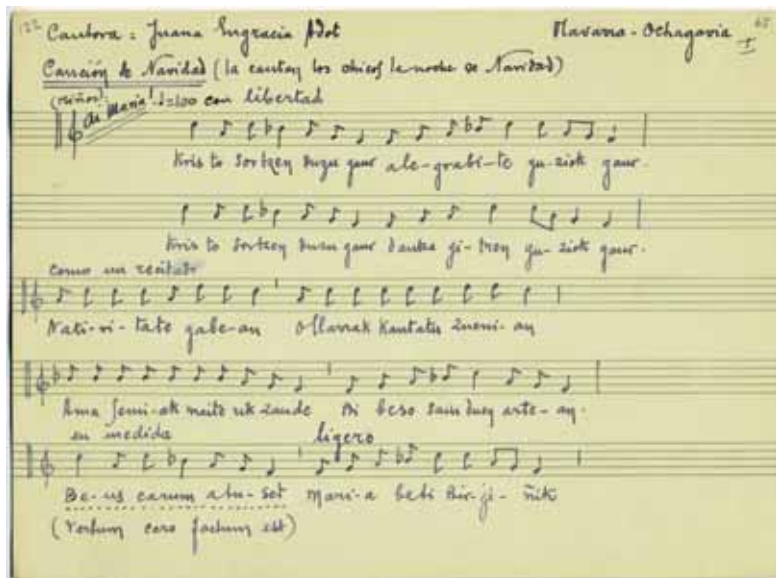 122 Cantora = Juana Engracia Adot Navarra - Ochagavia 65
I
Canción de Navidad (la cantan los chicos la noche de Navidad)
(niños) Ai Maria! ♩=100 con libertad
Kris to sortzen duzu gaur ale-grabi-te gu-ziok gaur.
Kris to sortzen duzu gaur dantza gi-tzen gu-ziok gaur.
como un recitado
Nati-ri-tate gabe-an ollarrak kantatu zueni-an
Ama semi-ak maite rik zaude Bi beso arte-an.
en medida ligero
Be-us carum atu-set Mari-a beti Bir-ji-ñik
(Verbum caro factum est)